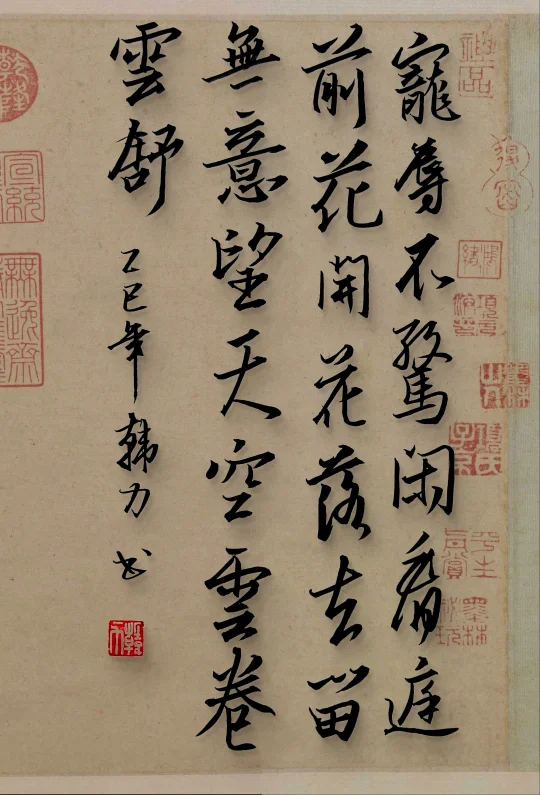 寵辱不驚閑看庭
前花開花落去留
無意望天空雲卷
雲舒
乙巳年韓力书